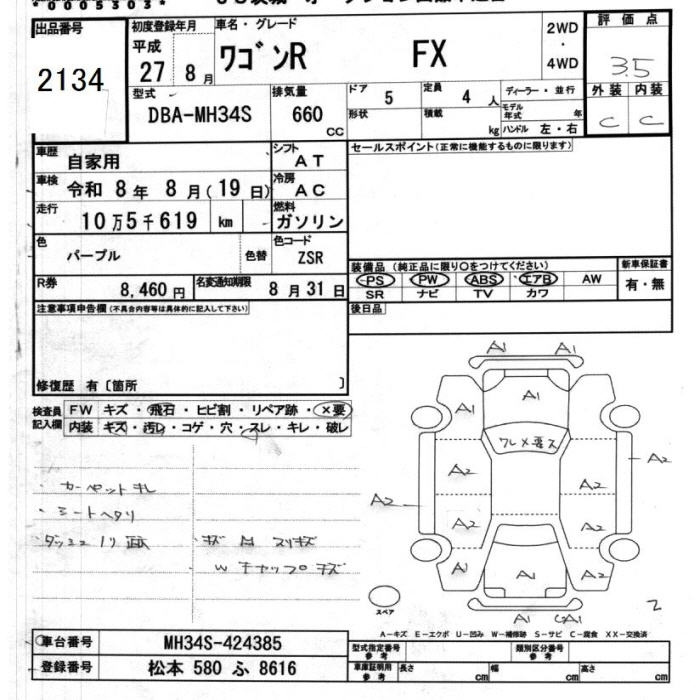 *0005303*
出品番号
2134
初度登録年月
平成
27 8月
車名・グレード
ワゴンR FX
2WD
・
4WD
評価点
3.5
外装 内装
C C
型式
DBA-MH34S
排気量
660
CC
ドア
5
定員
4 人
形状
積載
kg
ディーラー・並行
モデル年式 年
ハンドル 左・右
車歴
自家用
シフト
AT
車検
令和 8年 8月(19日)
冷房
AC
走行
10万5千619 km
燃料
ガソリン
色
パープル
色替
色コード
ZSR
R券
8,460円
名変通知期限
8月31日
セールスポイント(正常に機能するものに限ります)
装備品 (純正品に限り○をつけてください)
PS PW ABS エアB AW
SR ナビ TV カワ
新車保証書
有・無
後日品
注意事項申告欄(不具合内容等は具体的に記入して下さい)
修復歴 有〔箇所 〕
検査員記入欄
FW キズ・飛石・ヒビ割・リペア跡・×要
内装 キズ・汚れ・コゲ・穴・スレ・キレ・破レ
・カーペットキレ
・シートヘタリ
キズ
W キャップキズ
A1 A1
A1
A1 A1
ワレメ要ス
A2 A2
A2 A2
A2 A2
A1 A1 A2
A1
スペア
2
A-キズ E-エクボ U-凹み W-補修跡 S-サビ C-腐食 XX-交換済
車台番号 MH34S-424385
登録番号 松本 580 ふ 8616
型式指定番号
参考
類別区分番号
参考
車庫証明用
参考
長さ cm 幅 cm 高さ cm